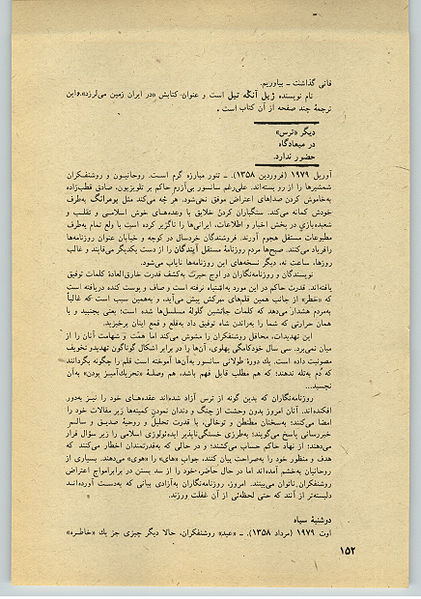 فانی گذاشت ـ بیاوریم.
نام نویسنده ژیل آنکه تیل است و عنوان کتابش «در ایران زمین می‌لرزد». و این
ترجمهٔ چند صفحه از آن کتاب است .
دیگر «ترس»
در میعادگاه
حضور ندارد.
آوریل ۱۹۷۹ (فروردین ۱۳۵۸). ـ تنور مبارزه گرم است. روحانیون و روشنفکران
شمشیرها را از رو بسته‌اند. علی‌رغم سانسور بی‌آزرم حاکم بر تلویزیون، صادق قطب‌زاده
به‌خاموش کردن صداهای اعتراض موفق نمی‌شود. هر چه می‌کند مثل بومرانگ به‌طرف
خودش کمانه می‌کند. سنگباران کردن خلایق با وعده‌های خوش اسلامی و تقلب و
شعبده‌بازی در بخش اخبار و اطلاعات، ایرانی‌ها را ناگزیر کرده است با ولع تمام به‌طرف
مطبوعات مستقل هجوم آورند. فروشندگان خردسال در کوچه و خیابان عنوان روزنامه‌ها
را فریاد می‌کنند. صبح‌ها مردم روزنامهٔ مستقل آیندگان را از دست یکدیگر می‌قاپند و غالباً
روزها، ساعت نه، دیگر نسخه‌های این روزنامه‌ها نایاب می‌شود.
نویسندگان و روزنامه‌نگاران در اوج حیرت به‌کشف قدرت خارق‌العادهٔ کلمات توفیق
یافته‌اند. قدرت حاکم در این مورد به‌اشتباه نرفته است و صاف و پوست کنده دریافته است
که «خطر» از جانب همین قلم‌های سرکش پیش می‌آید، و به‌همین سبب است که غالباً
به‌مردم هشدار می‌دهد که کلمات جانشین گلولهٔ مسلسل‌ها شده است؛ یعنی بجنبید و با
همان حرارتی که شما را به‌راندن شاه توفیق داد به‌قلع و قمع اینان برخیزید.
این تهدیدات، محافل روشنفکران را مشوش می‌کند اما همّت و شهامت آنان را از
میان نمی‌برد. سی سال خودکامگی پهلوی، آن‌ها را در برابر اشکال گوناگون تهدید و تخویف
مصونیت داده است. یك دورهٔ طولانی سانسور به‌آن‌ها آموخته است قلم را چگونه بگردانند
که دُم به‌تله ندهند؛ که هم مطلب قابل فهم باشد، هم وصلهٔ «تحریك‌آمیز بودن» به‌آن
نچسبد...
روزنامه‌نگاران که بدین گونه از ترس آزاد شده‌اند عقده‌های خود را نیـز به‌دور
افکنده‌اند. آنان امروز بدون وحشت از چنگ و دندان نمودن کمیته‌ها زیر مقالات خود را
امضا می‌کنند؛ به‌سخنان مطنطن و توخالی، با قدرت تحلیل و روحیهٔ صدیق و سالـم
خبررسانی پاسخ می‌گویند؛ به‌طرزی خستگی‌ناپذیر ایده‌ئولوژی اسلامی را زیر سؤال قرار
می‌دهند؛ از نهاد حاکم حساب می‌کشند؛ و در حالی که به‌قدرتمندان اخطار می‌کنند که
هدف و منظور خود را به‌صراحت بیان کنند، جواب «های» را «هوی» می‌دهند. بسیاری از
روحانیان به‌خشم آمده‌اند اما در حال حاضر، خود را از سد بستن در برابر امواج اعتراض
روشنفکران ناتوان می‌بینند. امروز، روزنامه‌نگاران به‌آزادی بیانی که به‌دست آورده‌انـد
دلبسته‌تر از آنند که حتی لحظه‌ئی از آن غفلت ورزند.
دوشنبهٔ سیاه
اوت ۱۹۷۹ (مرداد ۱۳۵۸). ـ «عید» روشنفکران، حالا دیگر چیزی جز یك «خاطـره»
۱۵۲